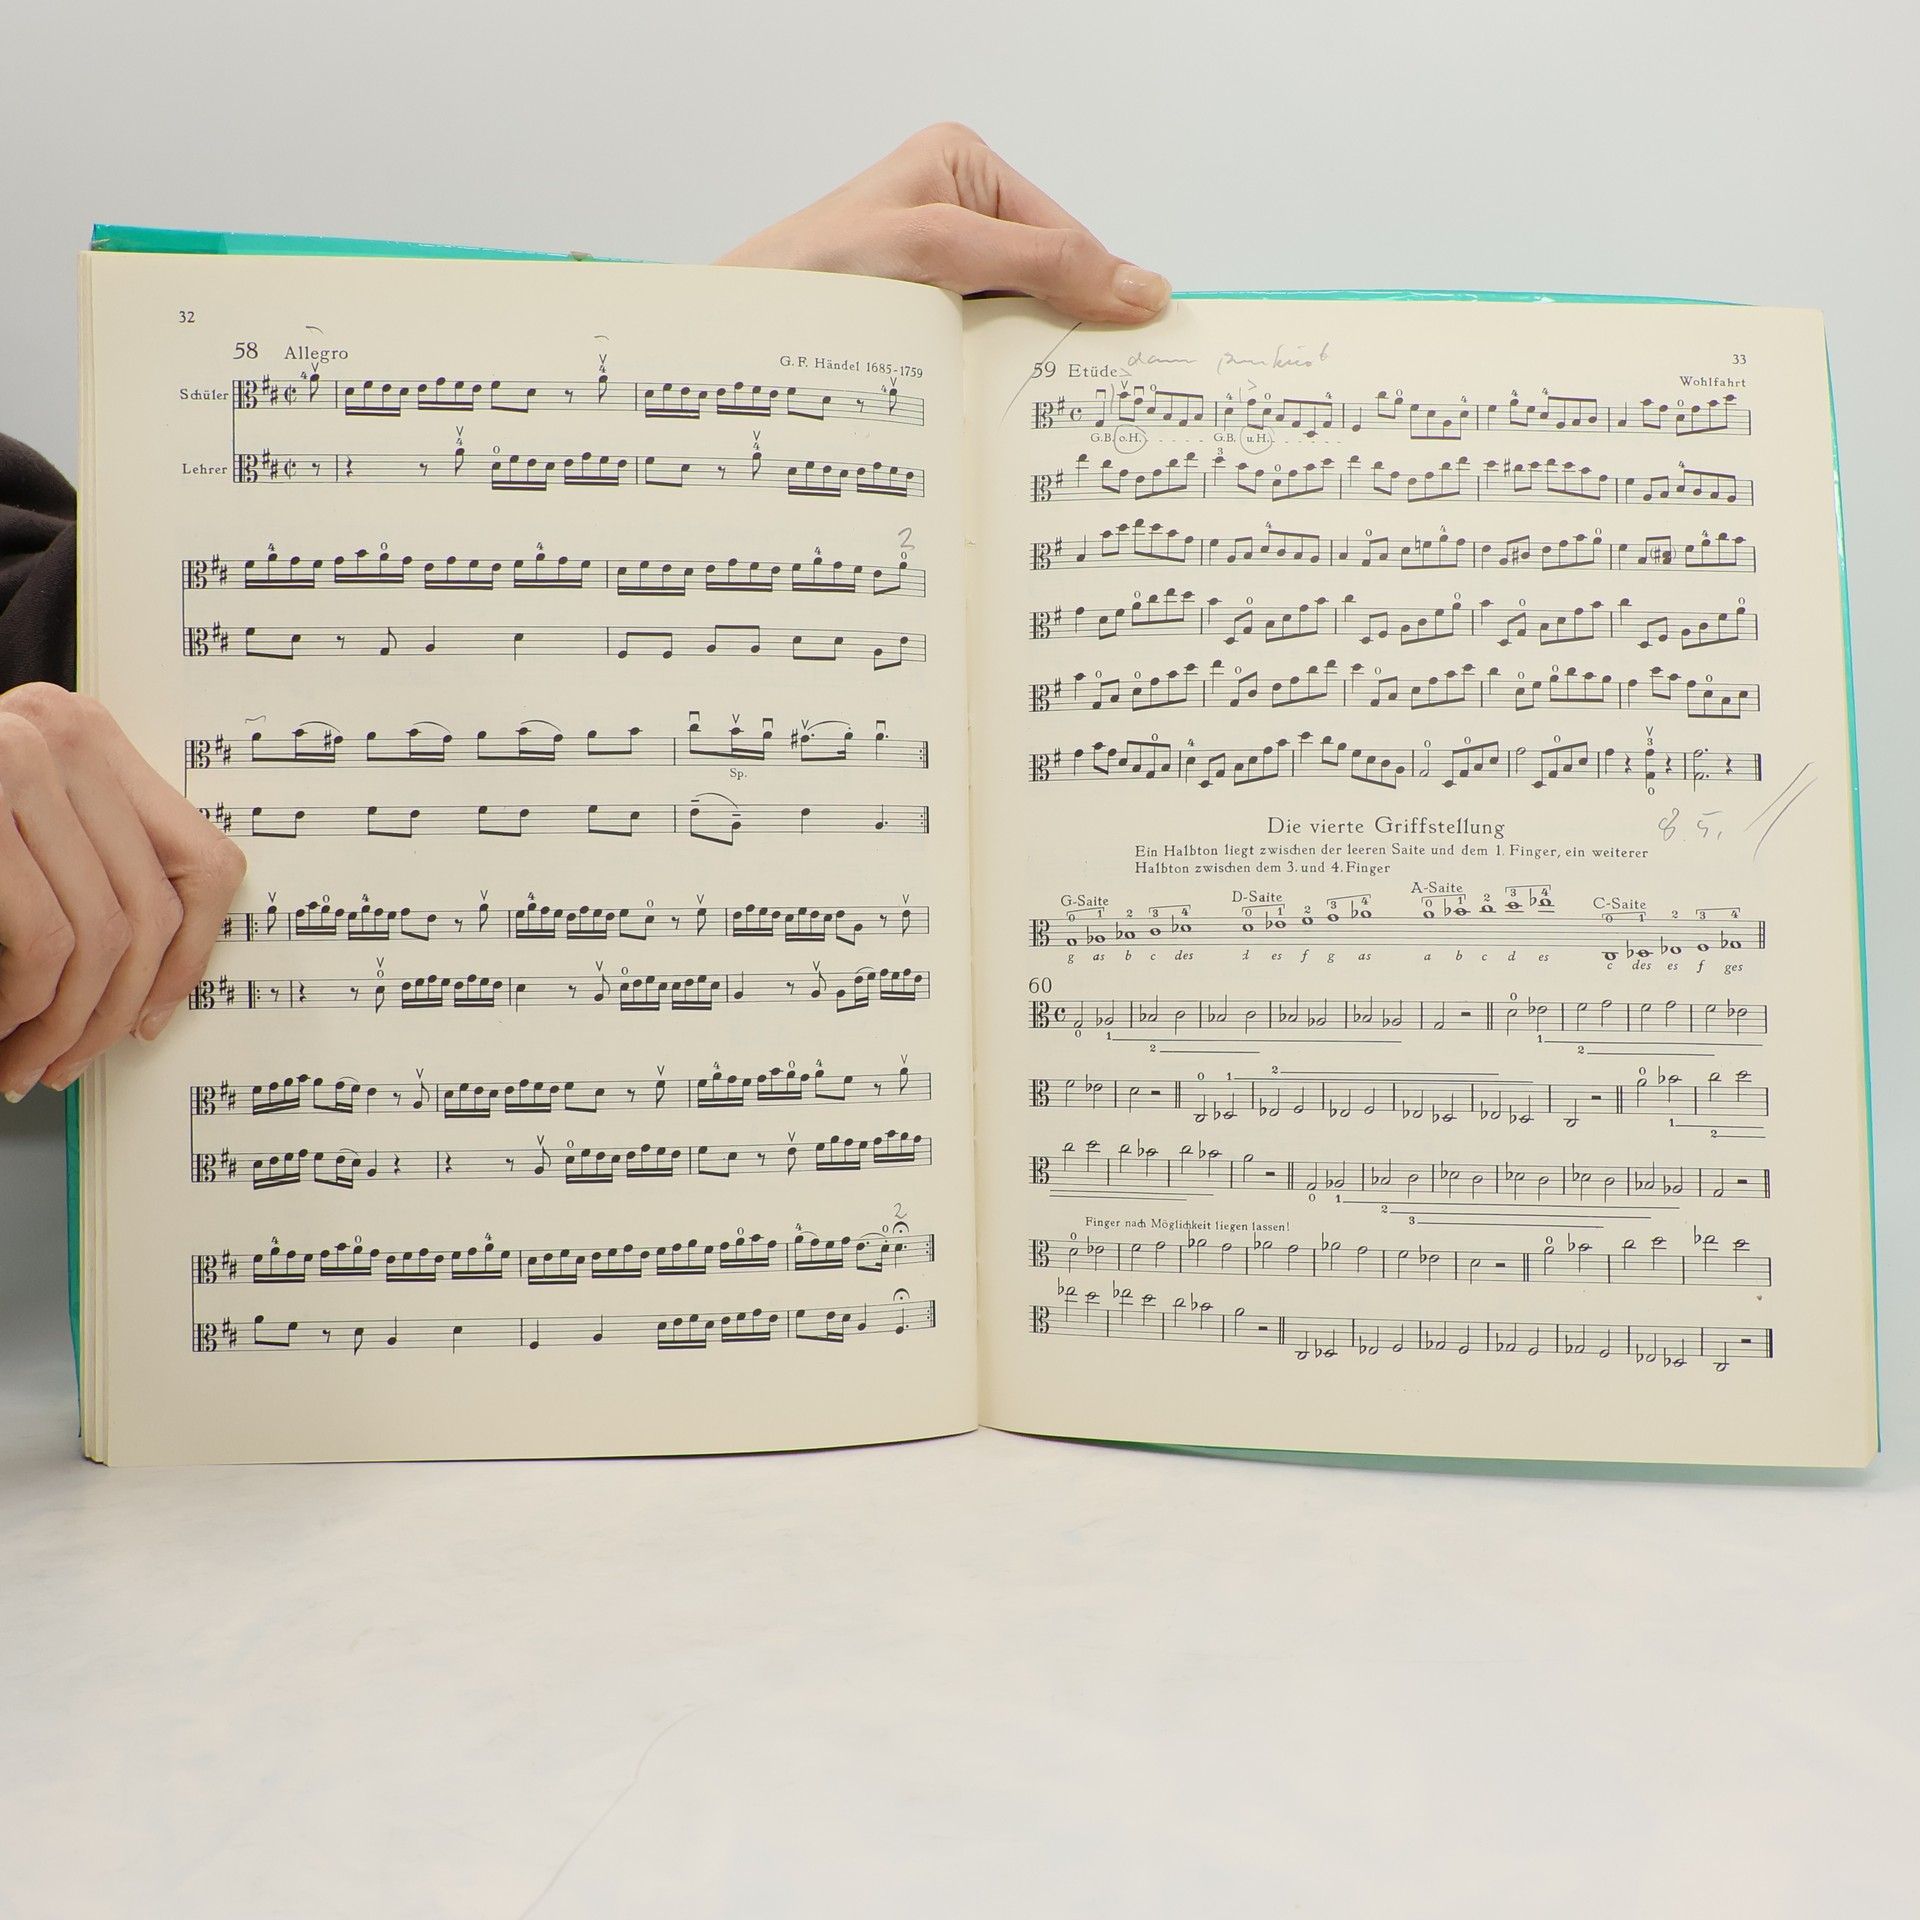 32
58 Allegro
G. F. Händel 1685-1759
Schüler
Lehrer
Sp.
33
59 Etüde
Wohlfahrt
G.B. o.H. G.B. u.H.
8.5.
Die vierte Griffstellung
Ein Halbton liegt zwischen der leeren Saite und dem 1. Finger, ein weiterer
Halbton zwischen dem 3. und 4. Finger
G-Saite D-Saite A-Saite C-Saite
0 1 2 3 4 0 1 2 3 4 0 1 2 3 4 0 1 2 3 4
g as b c des d es f g as a b c d es c des es f ges
60
Finger nach Möglichkeit liegen lassen!